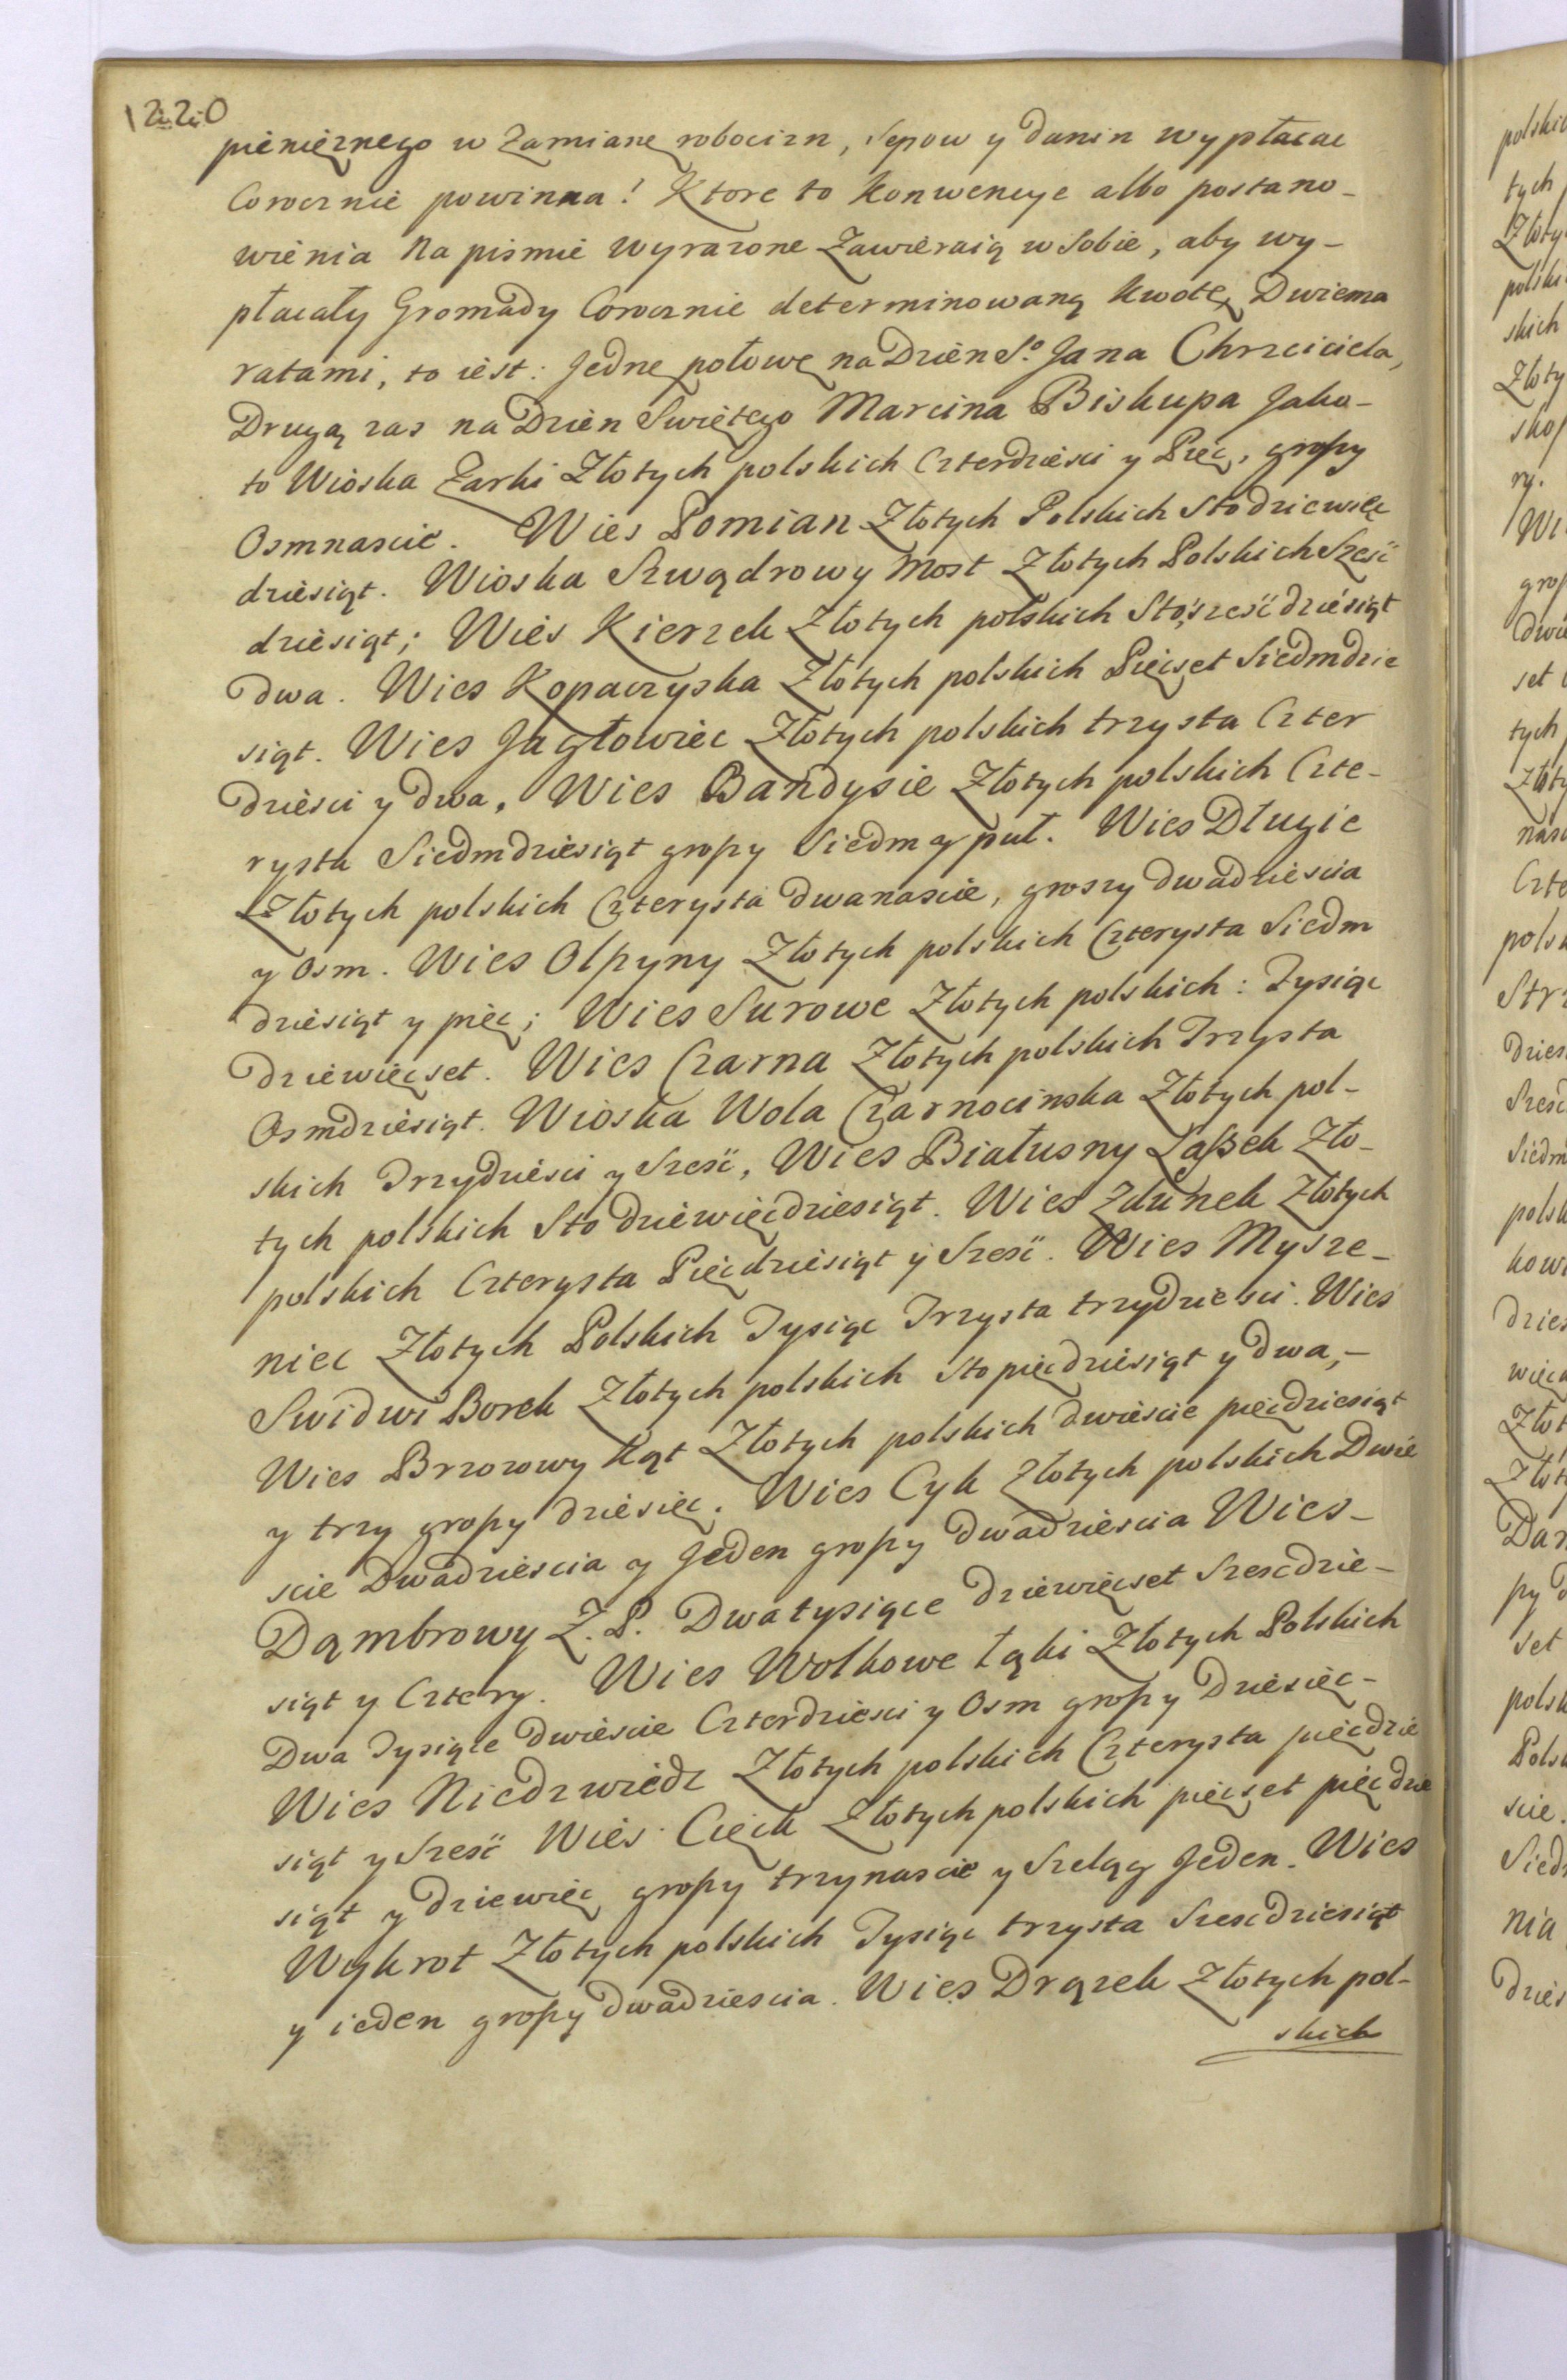 1220
pienięznego w Zamianę robocizn, Sepow y danin wypłacac
Corocznie powinna! Ktore to Konwencye albo postano-
wienia na pismie wyrazone Zawieraią w Sobie, aby wy-
płacały Gromady Corocznie determinowaną kwotę, Dwiema
ratami, to iest: Jednę połowę na Dzien S.º Jana Chrzciciela,
Drugą zas na Dzien Swiętego Marcina Biskupa Jako-
to Wioska Zarki Złotych polskich Czterdziesci y Pięc, groszy
Osmnascie. Wies Pomian Złotych Polskich Stodziewięc
dziesiąt. Wioska Szwądrowy Most Złotych Polskich Szesć
dziesiąt; Wies Kierzek Złotych polskich Sto, szesćdziesiąt
dwa. Wies Kopaczyska Złotych polskich Pięcset Siedmdzie
siąt. Wies Jagłowiec Złotych polskich trzysta Czter
dziesci y dwa, Wies Bandysie Złotych polskich Czte-
rysta Siedmdziesiąt groszy Siedm y puł. Wies Długie
Złotych polskich Czterysta dwanascie, groszy dwadziescia
y Osm. Wies Olszyny Złotych polskich Czterysta Siedm
dziesiąt y pięc; Wies Surowe Złotych polskich: Tysiąc
dziewięcset. Wies Czarna Złotych polskich Trzysta
Osmdziesiąt. Wioska Wola Czarnocinska Złotych pol-
skich Trzydziesci y Szesć, Wies Białusny Lassek Zło-
tych polskich Sto dziewięcdziesiąt. Wies Zdunek Złotych
polskich Czterysta Pięcdziesiąt y Szesć. Wies Mysze-
niec Złotych Polskich Tysiąc Trzysta trzydziesci. Wies
Swidwi Borek Złotych polskich Sto pięcdziesiąt y dwa,-
Wies Brzozowy Kąt Złotych polskich dwiescie pięcdziesiąt
y trzy groszy dziesięc. Wies Cyk Złotych polskich Dwie
scie Dwadziescia y Jeden groszy Dwadziescia Wies-
Dąmbrowy Z. P. Dwa tysiące dziewięcset Szescdzie-
siąt y Cztery. Wies Wolkowe Łąki Złotych Polskich
Dwa Tysiące dwiescie Czterdziesci y Osm groszy Dziesięc-
Wies Niedzwiedz Złotych polskich Czterysta pięcdzie
siąt y Szesć Wies Cięck Złotych polskich pięcset pięcdzie
siąt y dziewięc groszy trzynascie y Szeląg Jeden. Wies
Wykrot Złotych polskich Tysiąc trzysta Szescdziesiąt
y ieden groszy dwadziescia. Wies Drązek Złotych pol-
skich